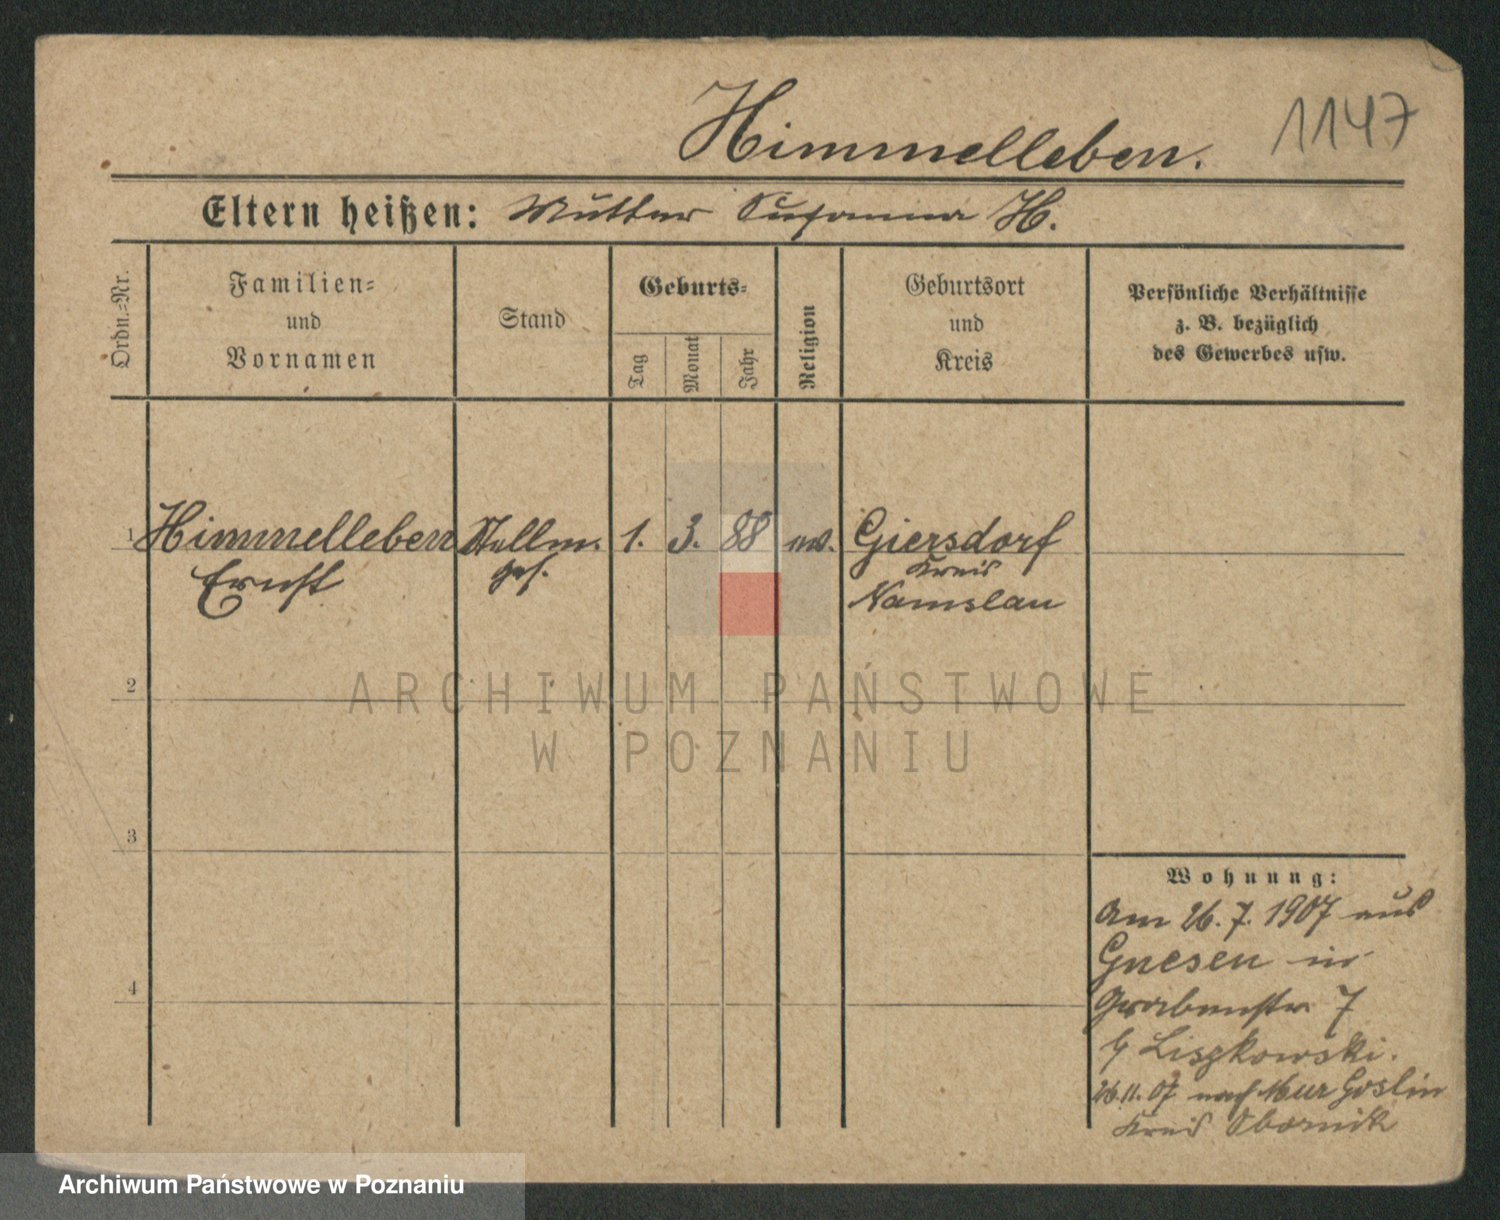 Himmelleben.
1147
Eltern heißen: Mutter Susanna H.
Ordn.-Nr.
Familien-
und
Vornamen
Stand
Geburts-
Tag
Monat
Jahr
Religion
Geburtsort
und
Kreis
Persönliche Verhältnisse
z. B. bezüglich
des Gewerbes usw.
1 Himmelleben Stellm. 1. 3. 88 ev. Giersdorf
Ernst ges. Kreis
Namslau
2
3
4
Wohnung:
Am 26. 7. 1907 aus
Gnesen in
Grabenstr. 7
Liszkowski.
26.11.07 nach Mur Goslin
Kreis Obornik
ARCHIWUM PAŃSTWOWE
W POZNANIU
Archiwum Państwowe w Poznaniu